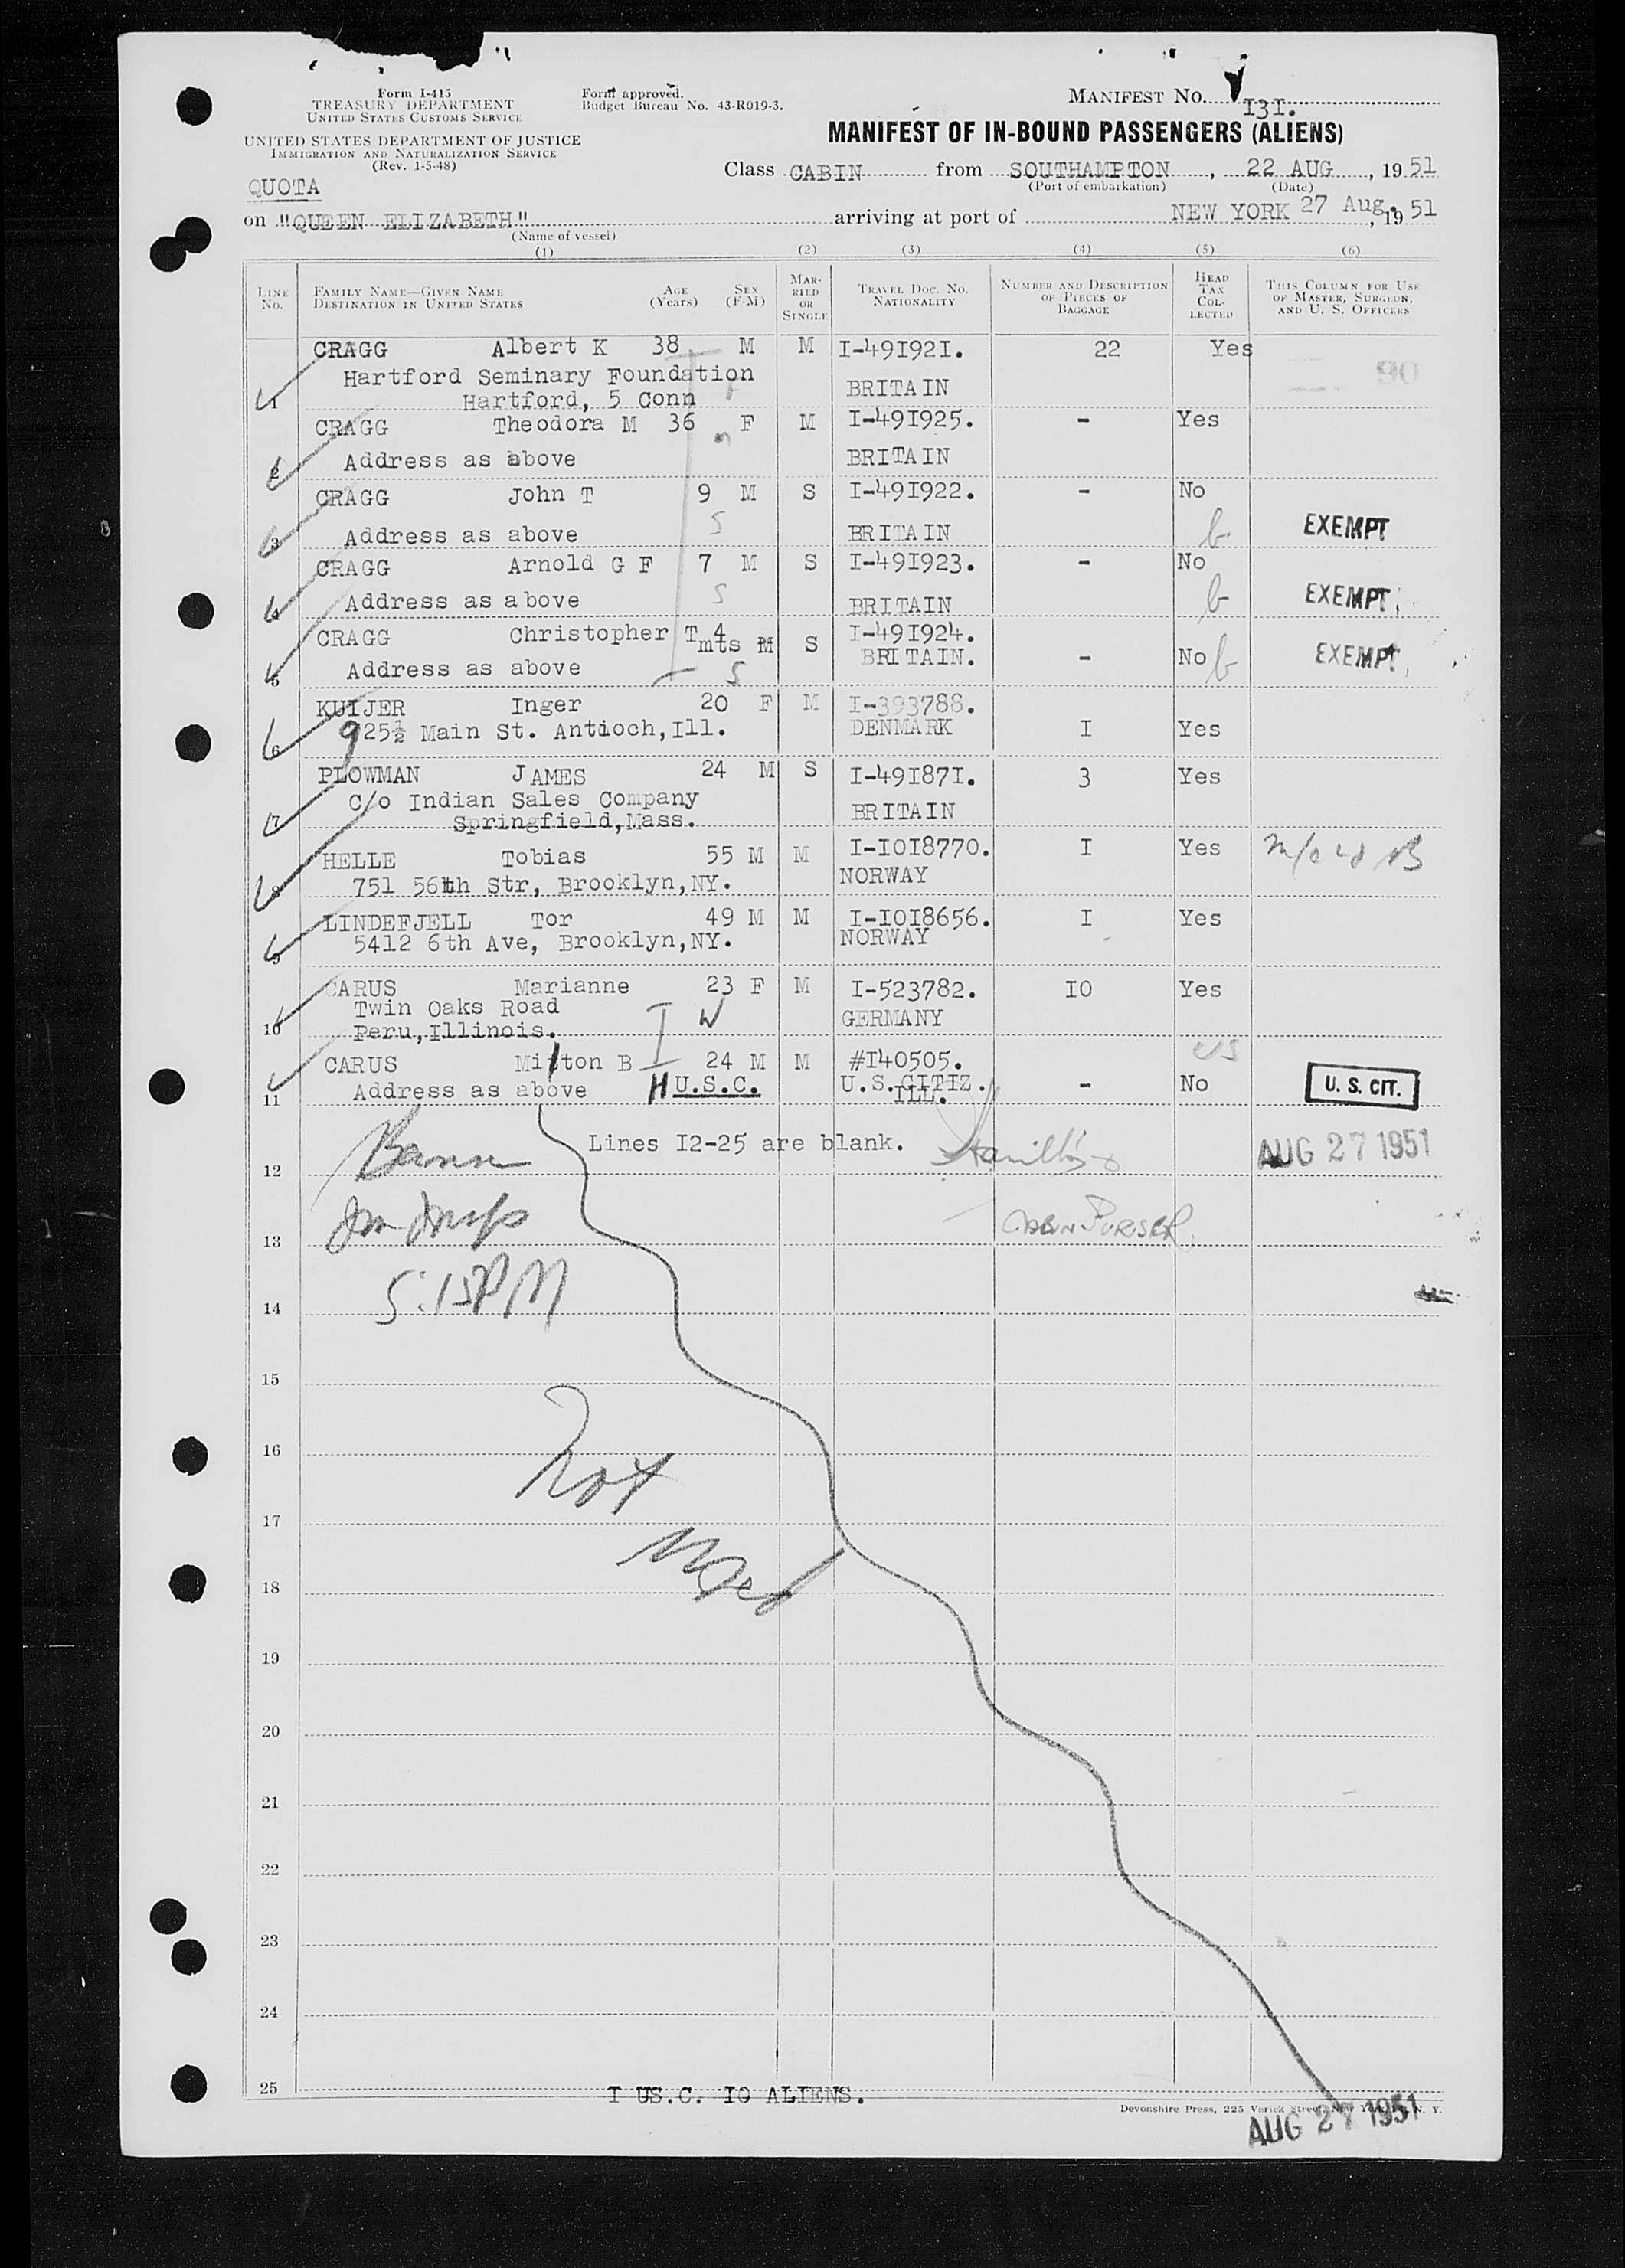 Form I-415
TREASURY DEPARTMENT
UNITED STATES CUSTOMS SERVICE
Form approved.
Budget Bureau No. 43-R019-3.
MANIFEST NO. I3I.
UNITED STATES DEPARTMENT OF JUSTICE
IMMIGRATION AND NATURALIZATION SERVICE
(Rev. 1-5-48)
MANIFEST OF IN-BOUND PASSENGERS (ALIENS)
QUOTA
Class CABIN from SOUTHAMPTON, 22 AUG, 19 51
(Port of embarkation) (Date)
on "QUEEN ELIZABETH" arriving at port of NEW YORK 27 Aug., 19 51
(Name of vessel)
(1) (2) (3) (4) (5) (6)
LINE NO. FAMILY NAME—GIVEN NAME DESTINATION IN UNITED STATES AGE (Years) SEX (F-M) MARRIED OR SINGLE TRAVEL DOC. NO. NATIONALITY NUMBER AND DESCRIPTION OF PIECES OF BAGGAGE HEAD TAX COLLECTED THIS COLUMN FOR USE OF MASTER, SURGEON, AND U. S. OFFICERS
CRAGG Albert K 38 M M I-49I92I. 22 Yes 90
Hartford Seminary Foundation BRITAIN
1 Hartford, 5 Conn
CRAGG Theodora M 36 F M I-49I925. - Yes
2 Address as above BRITAIN
CRAGG John T 9 M S I-49I922. - No
3 Address as above S BRITAIN b EXEMPT
CRAGG Arnold G F 7 M S I-49I923. - No
4 Address as above S BRITAIN b EXEMPT
CRAGG Christopher T 4 mts M S I-49I924. - No b EXEMPT
5 Address as above S BRITAIN.
KUIJER Inger 20 F M I-393788.
6 925½ Main St. Antioch, Ill. DENMARK I Yes
PLOWMAN JAMES 24 M S I-49I87I. 3 Yes
C/o Indian Sales Company BRITAIN
7 Springfield, Mass.
HELLE Tobias 55 M M I-I0I8770. I Yes
8 751 56th Str, Brooklyn, NY. NORWAY
LINDEFJELL Tor 49 M M I-I0I8656. I Yes
9 5412 6th Ave, Brooklyn, NY. NORWAY
CARUS Marianne 23 F M I-523782. I0 Yes
Twin Oaks Road W GERMANY
10 Peru, Illinois.
CARUS Milton B 24 M M #I40505. US
11 Address as above H U.S.C. U.S.CITIZ. ILL. - No U. S. CIT.
12 Lines I2-25 are blank. AUG 27 1951
13 CABIN PURSER
5:15PM
14
15
16 Not
17
18 Used
19
20
21
22
23
24
25 I US.C. I0 ALIENS.
Devonshire Press, 225 Varick Street, New York, N. Y.
AUG 27 1951